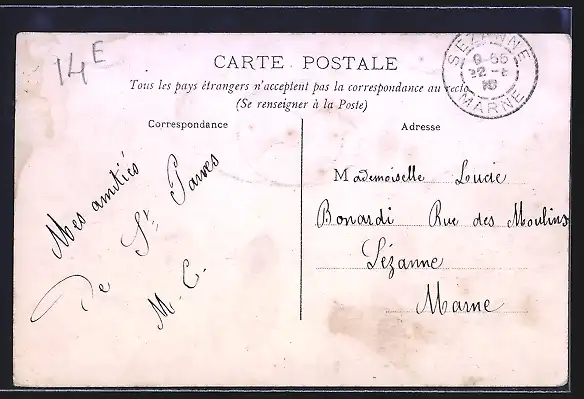 14E
CARTE POSTALE
Tous les pays étrangers n'acceptent pas la correspondance au recto
(Se renseigner à la Poste)
SEZANNE
MARNE
Correspondance
Mes amitiés
De St Parres
M. C.
Adresse
Mademoiselle Lucie
Bonardi Rue des Moulins
Sézanne
Marne